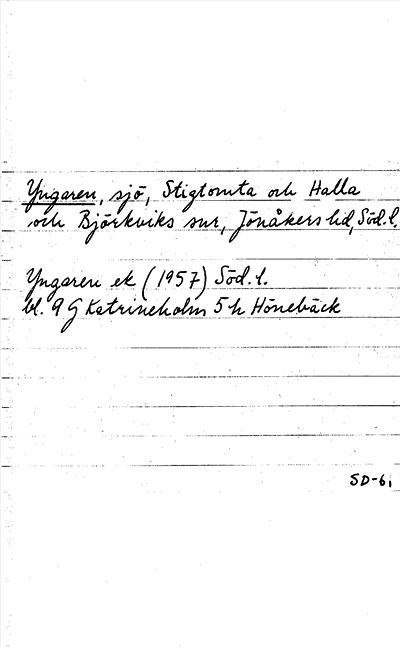 Yngaren, sjö, Stigtomta och Halla
och Björkviks snr, Jönåkers hd, Söd. l.
Yngaren ek (1957) Söd. l.
bl. 9 G Katrineholm 5 h Hönebäck
SD-6.